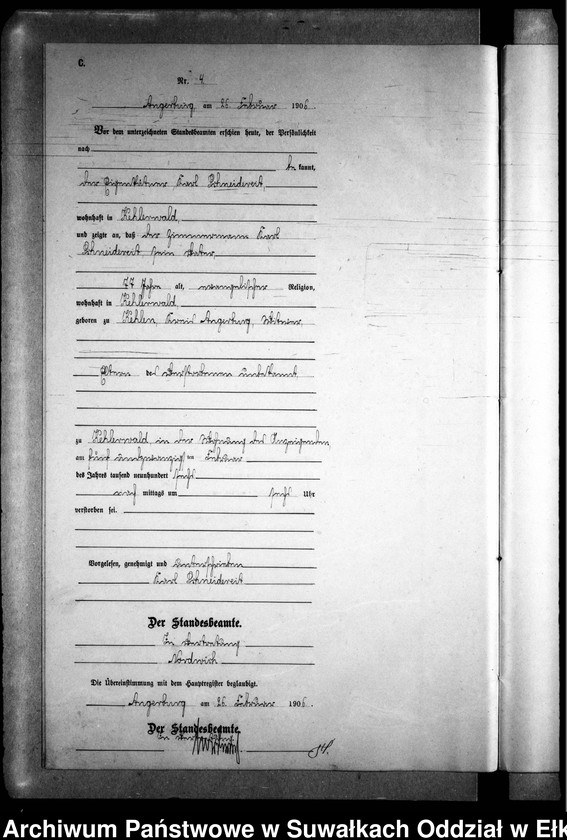 C.
Nr. 4
Angerburg, am 26. Februar 1906.
Vor dem unterzeichneten Standesbeamten erschien heute, der Persönlichkeit
nach
be kannt,
der Eigenkätner Karl Schneidereit,
wohnhaft in Kehlerwald,
und zeigte an, daß der Zimmermann Karl
Schneidereit sein Vater,
77 Jahre alt, evangelischer Religion,
wohnhaft in Kehlerwald,
geboren zu Kehlen, Kreis Angerburg, Witwer,
Eltern des Verstorbenen unbekannt,
zu Kehlerwald, in der Wohnung des Anzeigenden,
am fünf undzwanzigsten Februar
des Jahres tausend neunhundert sechs
nach mittags um sechs Uhr
verstorben sei.
Vorgelesen, genehmigt und unterschrieben
Karl Schneidereit
Der Standesbeamte.
In Vertretung
Nordwich
Die Übereinstimmung mit dem Hauptregister beglaubigt.
Angerburg am 26. Februar 1906.
Der Standesbeamte.
In Vertretung
Archiwum Państwowe w Suwałkach Oddział w Ełk